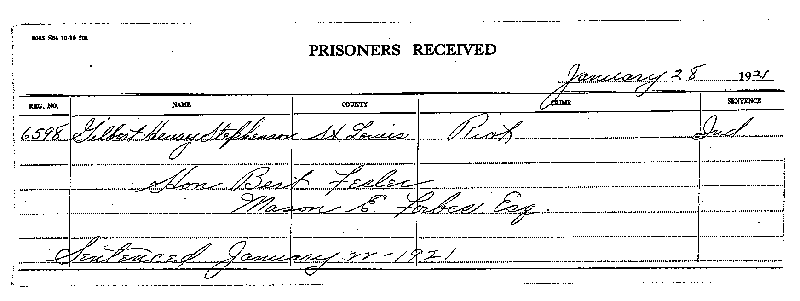 PRISONERS RECEIVED
January 28 1921
REG. NO. NAME COUNTY CRIME SENTENCE
6598 Gilbert Henry Stephenson St Louis Riot Ind
Hon Bert Fesler
Mason E. Forbes Esq.
Sentenced January 22-1921